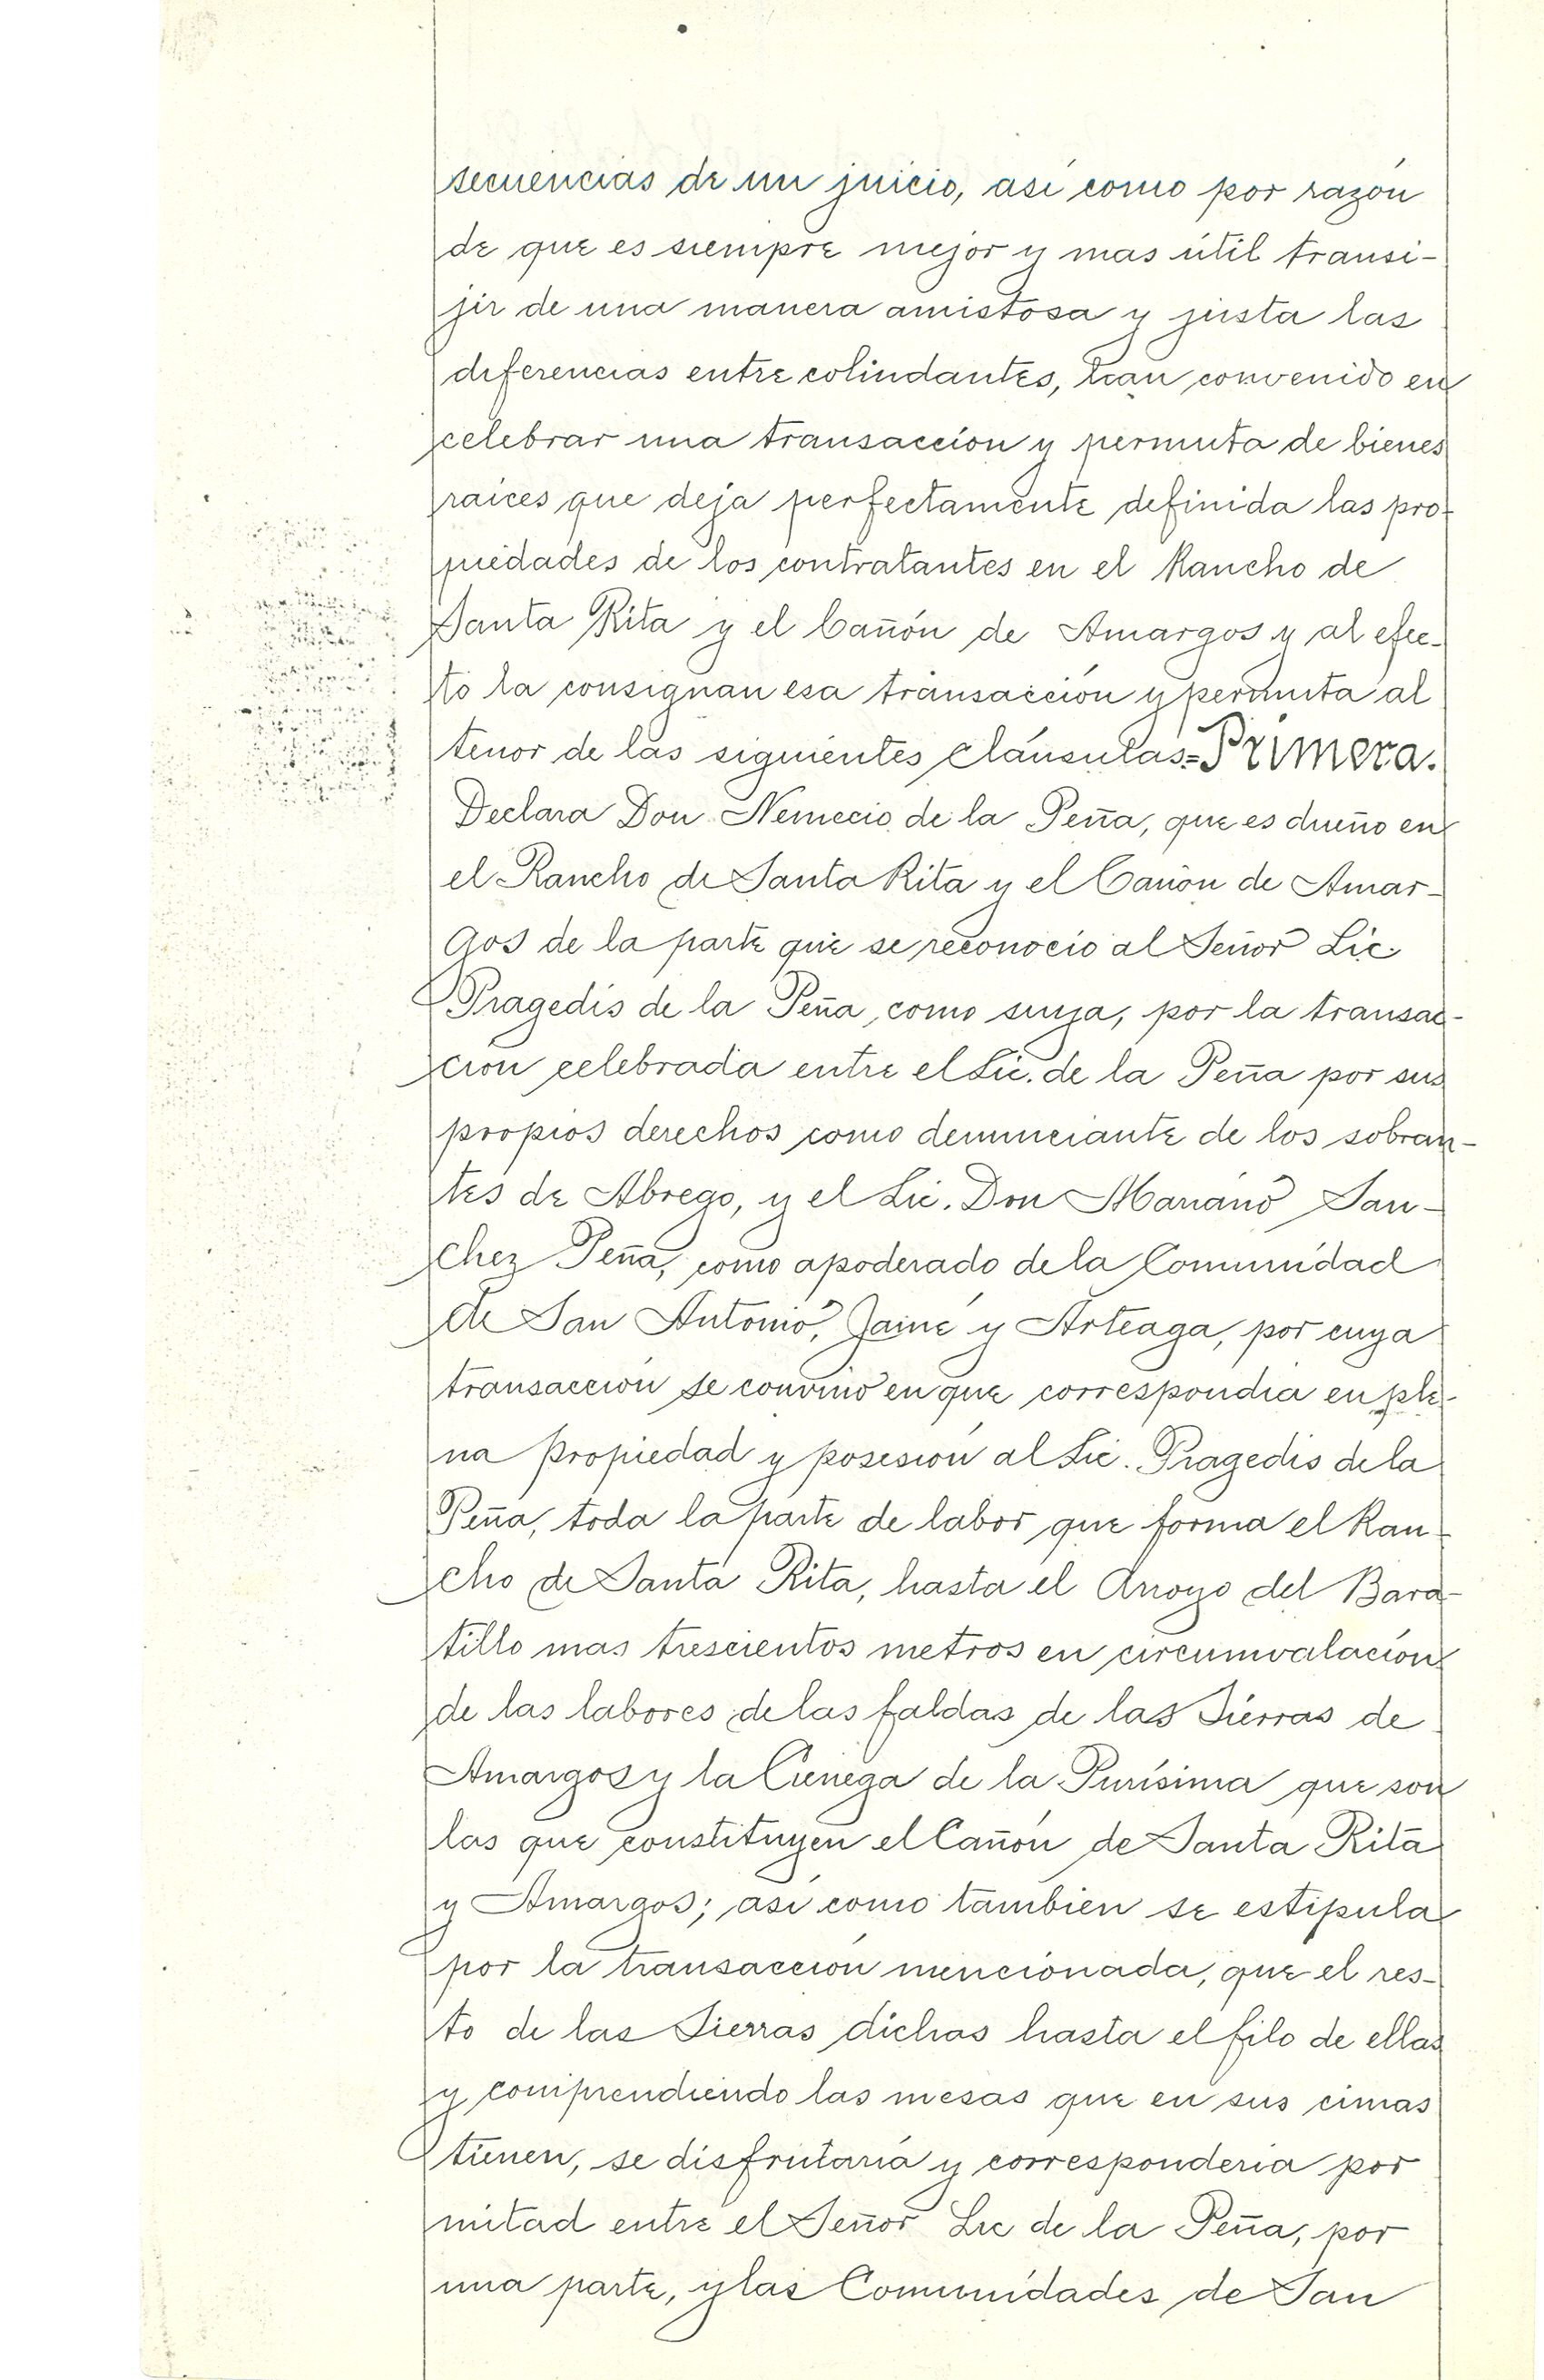 secuencias de un juicio, así como por razón
de que es siempre mejor y mas útil transi-
jir de una manera amistosa y justa las
diferencias entre colindantes, han convenido en
celebrar una transacción y permuta de bienes
raíces que deja perfectamente definida las pro-
piedades de los contratantes en el Rancho de
Santa Rita y el Cañón de Amargos y al efec-
to la consignan esa transacción y permuta al
tenor de las siguientes cláusulas=Primera.
Declara Don Nemecio de la Peña, que es dueño en
el Rancho de Santa Rita y el Cañón de Amar-
gos de la parte que se reconoció al Señor Lic.
Pragedis de la Peña, como suya, por la transac-
ción celebrada entre el Lic. de la Peña por sus
propios derechos como denunciante de los sobran-
tes de Abrego, y el Lic. Don Mariano San-
chez Peña, como apoderado de la Comunidad
de San Antonio, Jaime y Arteaga, por cuya
transacción se convino en que correspondia en ple-
na propiedad y posesión al Lic. Pragedis de la
Peña, toda la parte de labor que forma el Ran-
cho de Santa Rita, hasta el Arroyo del Bara-
tillo mas trescientos metros en circunvalación
de las labores de las faldas de las Sierras de
Amargos y la Cienega de la Purísima que son
las que constituyen el Cañón de Santa Rita
y Amargos; así como tambien se estipula
por la transacción mencionada, que el res-
to de las Sierras dichas hasta el filo de ellas
y comprendiendo las mesas que en sus cimas
tienen, se disfrutaría y correspondería por
mitad entre el Señor Lic de la Peña, por
una parte, y las Comunidades de San